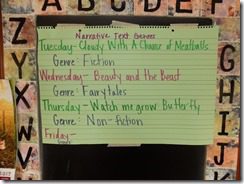 A B C D E
Narrative Text Genres
Tuesday- Cloudy With A Chance of Meatballs
Genre: Fiction
Wednesday- Beauty and the Beast
Genre: Fairytales
Thursday- Watch me grow Butterfly
Genre: Non-fiction
Friday-